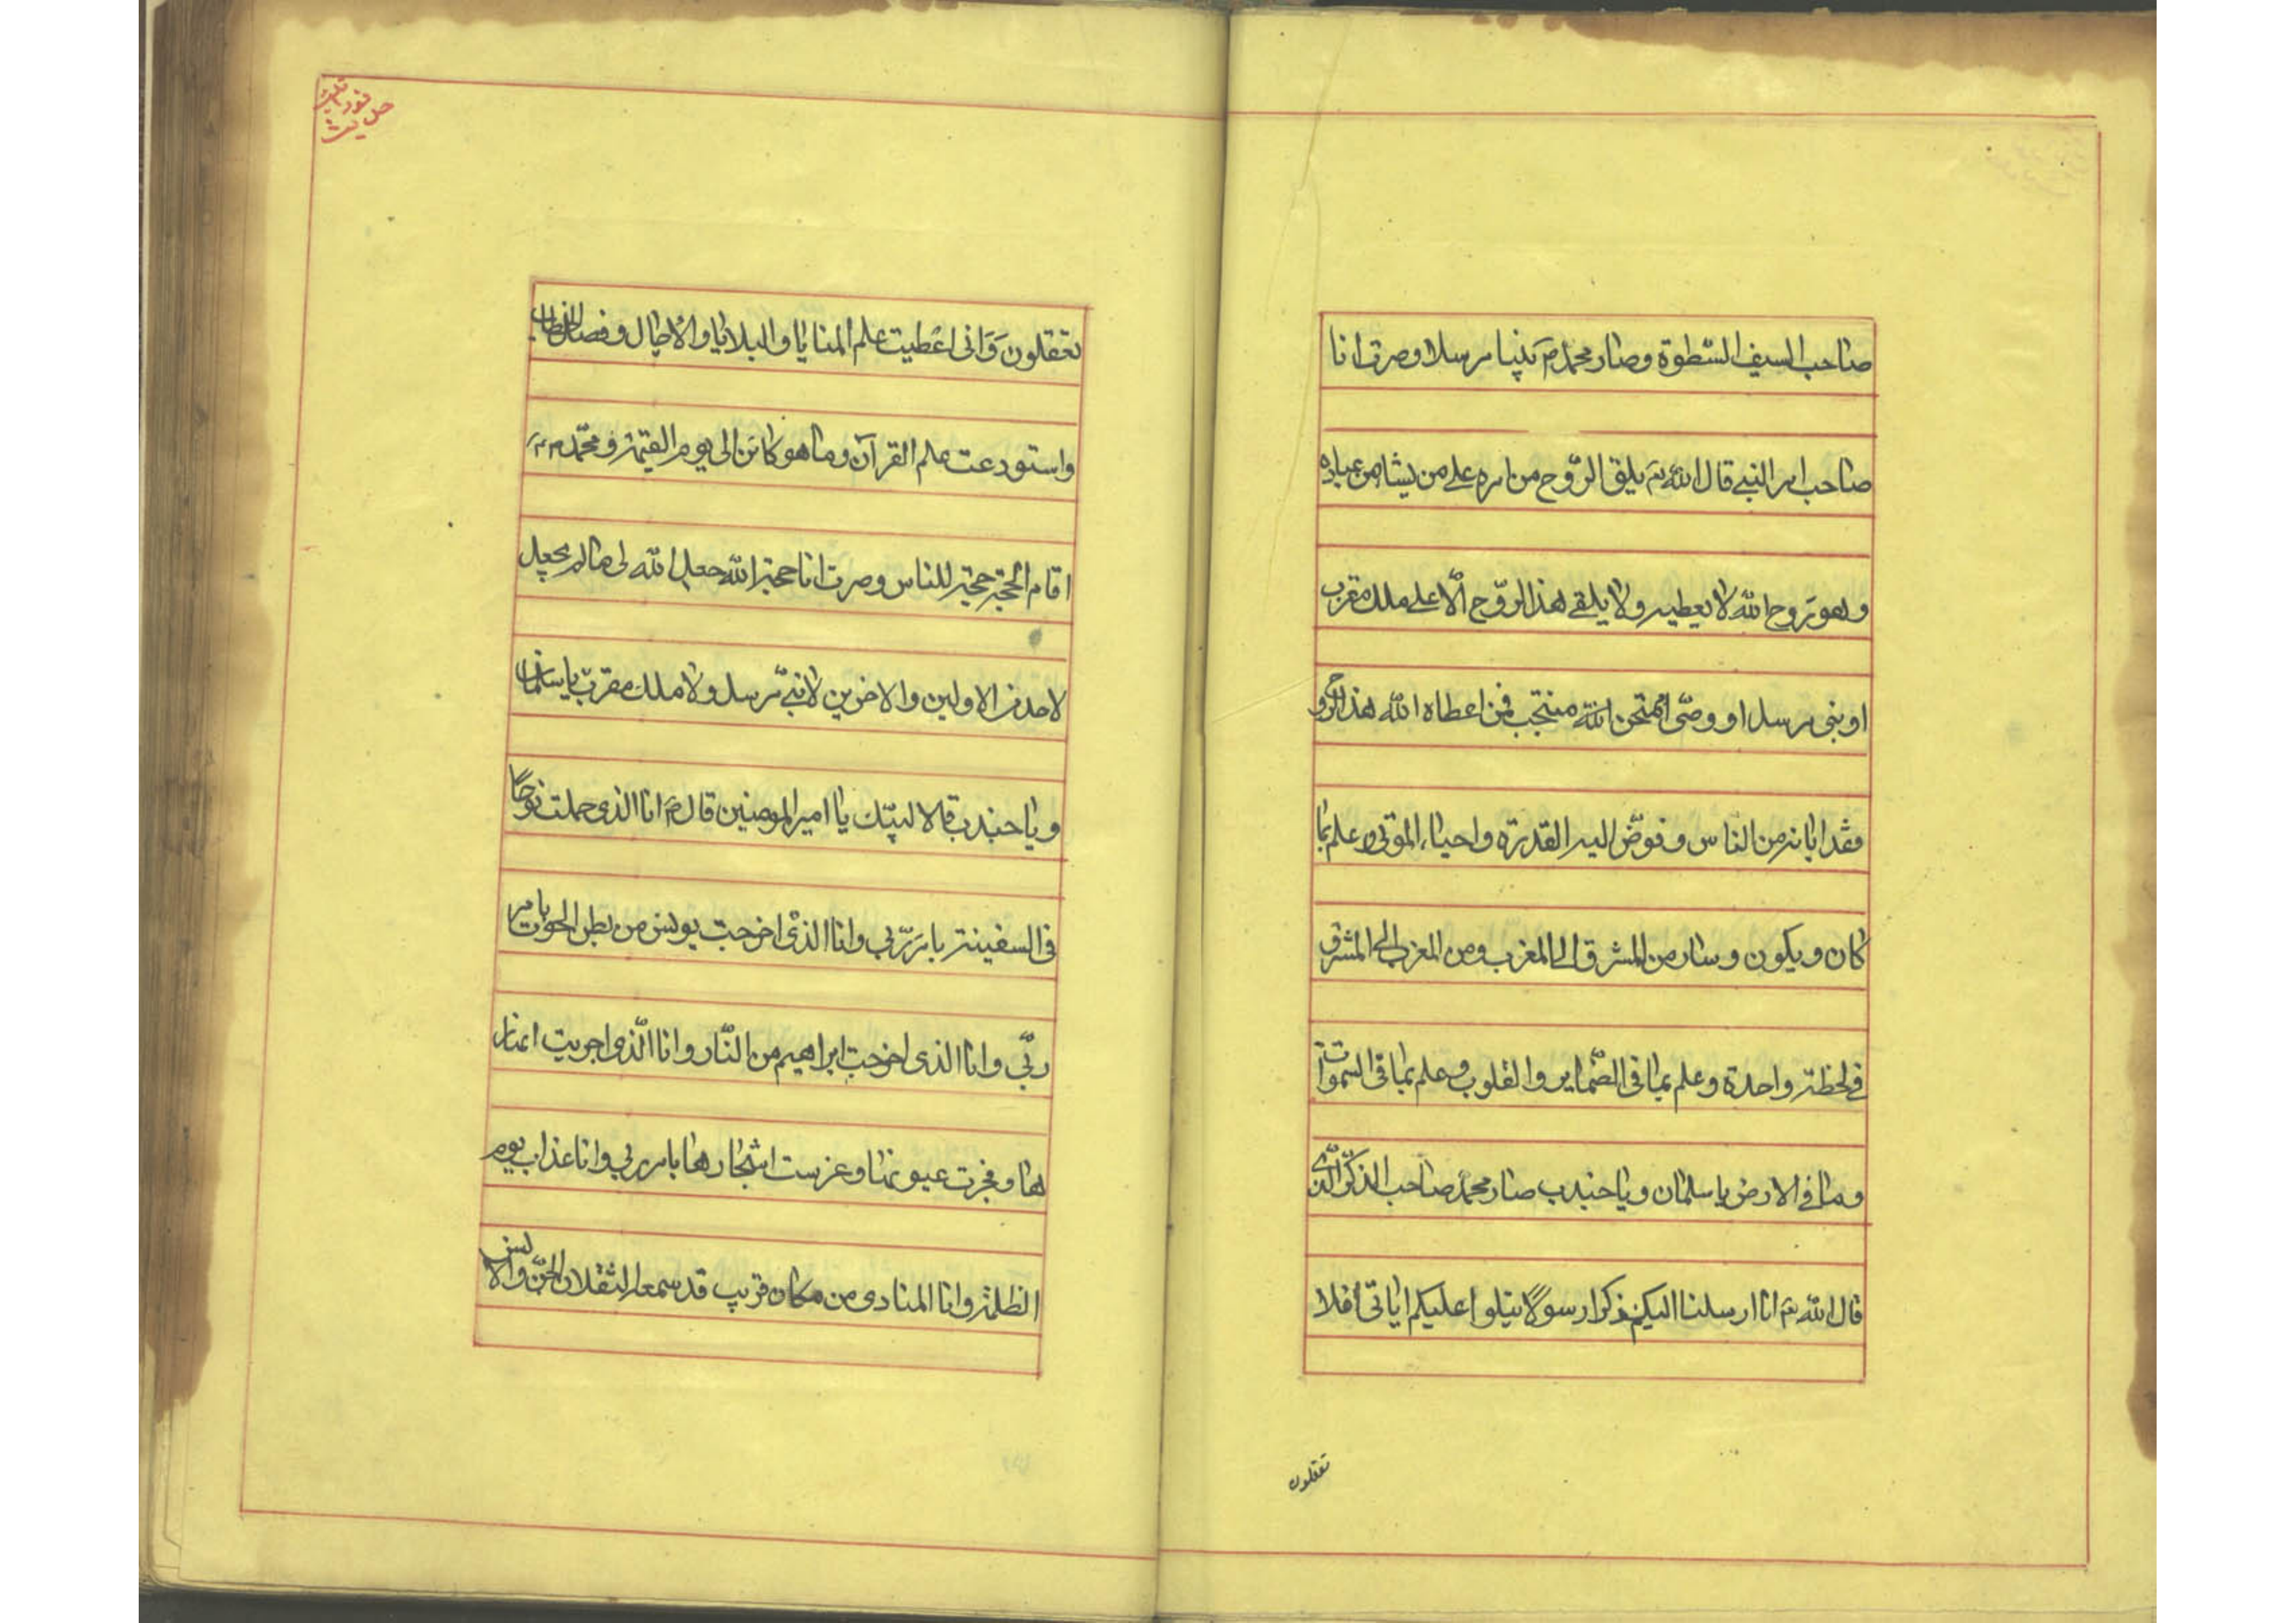 صاحب السيف السّطوة وصار محمدم نبيا مرسلا وصرت انا
صاحب امر النبي قال الله تع يلقى الرّوح من امره على من يشا من عباده
وهو روح الله لا يعطيه ولا يلقى هذا الرّوح الّا على ملك مقرب
او نبى مرسل او وصّى امتحن الله منتجب فمن اعطاه الله هذا الروح
فقد ابانه من الناس وفوّض اليه القدرة واحياء الموتى وعلم بما
كان ويكون وسار من المشرق الى المغرب ومن المغرب الى المشرق
في لحظة واحدة وعلم بما فى الضّماير والقلوب وعلم بما فى السّموات
وما في الارض يا سلمان ويا جندب صار محمد صاحب الذكر الّذى
قال الله تع انا ارسلنا اليكم ذكرا رسولا يتلوا عليكم اياتى افلا
تعقلون
حديث نورانية
تعقلون وَانى اعطيت علم المنايا والبلايا والاجال وفصل الخطاب
واستودعت علم القرآن وما هو كائن الى يوم القيمة ومحمّد م
اقام الحجّة حجة للناس وصرت انا حجة الله جعل الله لى ما لم يجعل
لاحد من الاولين والاخرين لا نبىّ مرسل ولا ملك مقرب يا سلمان
ويا جندب قالا لبيّك يا امير المومنين قال م انا الذى حملت نوحًا
فى السفينة بامر ربّي وانا الذى اخرجت يونس من بطن الحوت بامر
ربّي وانا الذى اخرجت ابراهيم من النّار وانا الّذى اجريت انهار
ها وفجرت عيونها وغرست اشجارها بامر ربي وانا عذاب يوم
الظلمة وانا المنادى من مكان قريب قد سمعه الثقلان الجنّ والانس